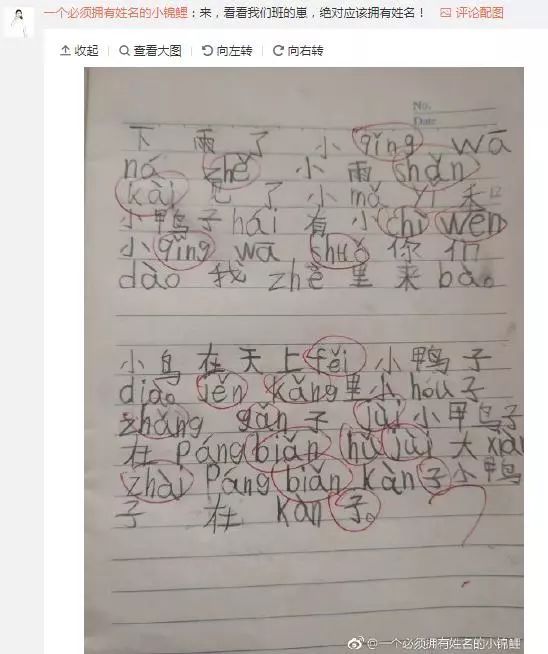 一个必须拥有姓名的小锦鲤：来，看看我们班的崽，绝对应该拥有姓名！ 评论配图
收起 查看大图 向左转 向右转
No.
Date
下 雨 了 小 qǐng wā
ná zhě 小 雨 shǎn
kài 见 了 小 mǎ yǐ 禾
小 鸭 子 hái 有 小 chì wēn
小 qǐng wā shuō 你 们
dào 我 zhě 里 来 bào。
小 鸟 在 天 上 fěi 小 鸭 子
diào jěn kǎng 里 小 hóu 子
zhǎng gǎn 子 jùi 小 鸭 子
在 páng biǎn hǔ jùi 大 xiàn
zhài páng biǎn kàn 子 小 鸭
子 在 kàn 子。
@一个必须拥有姓名的小锦鲤